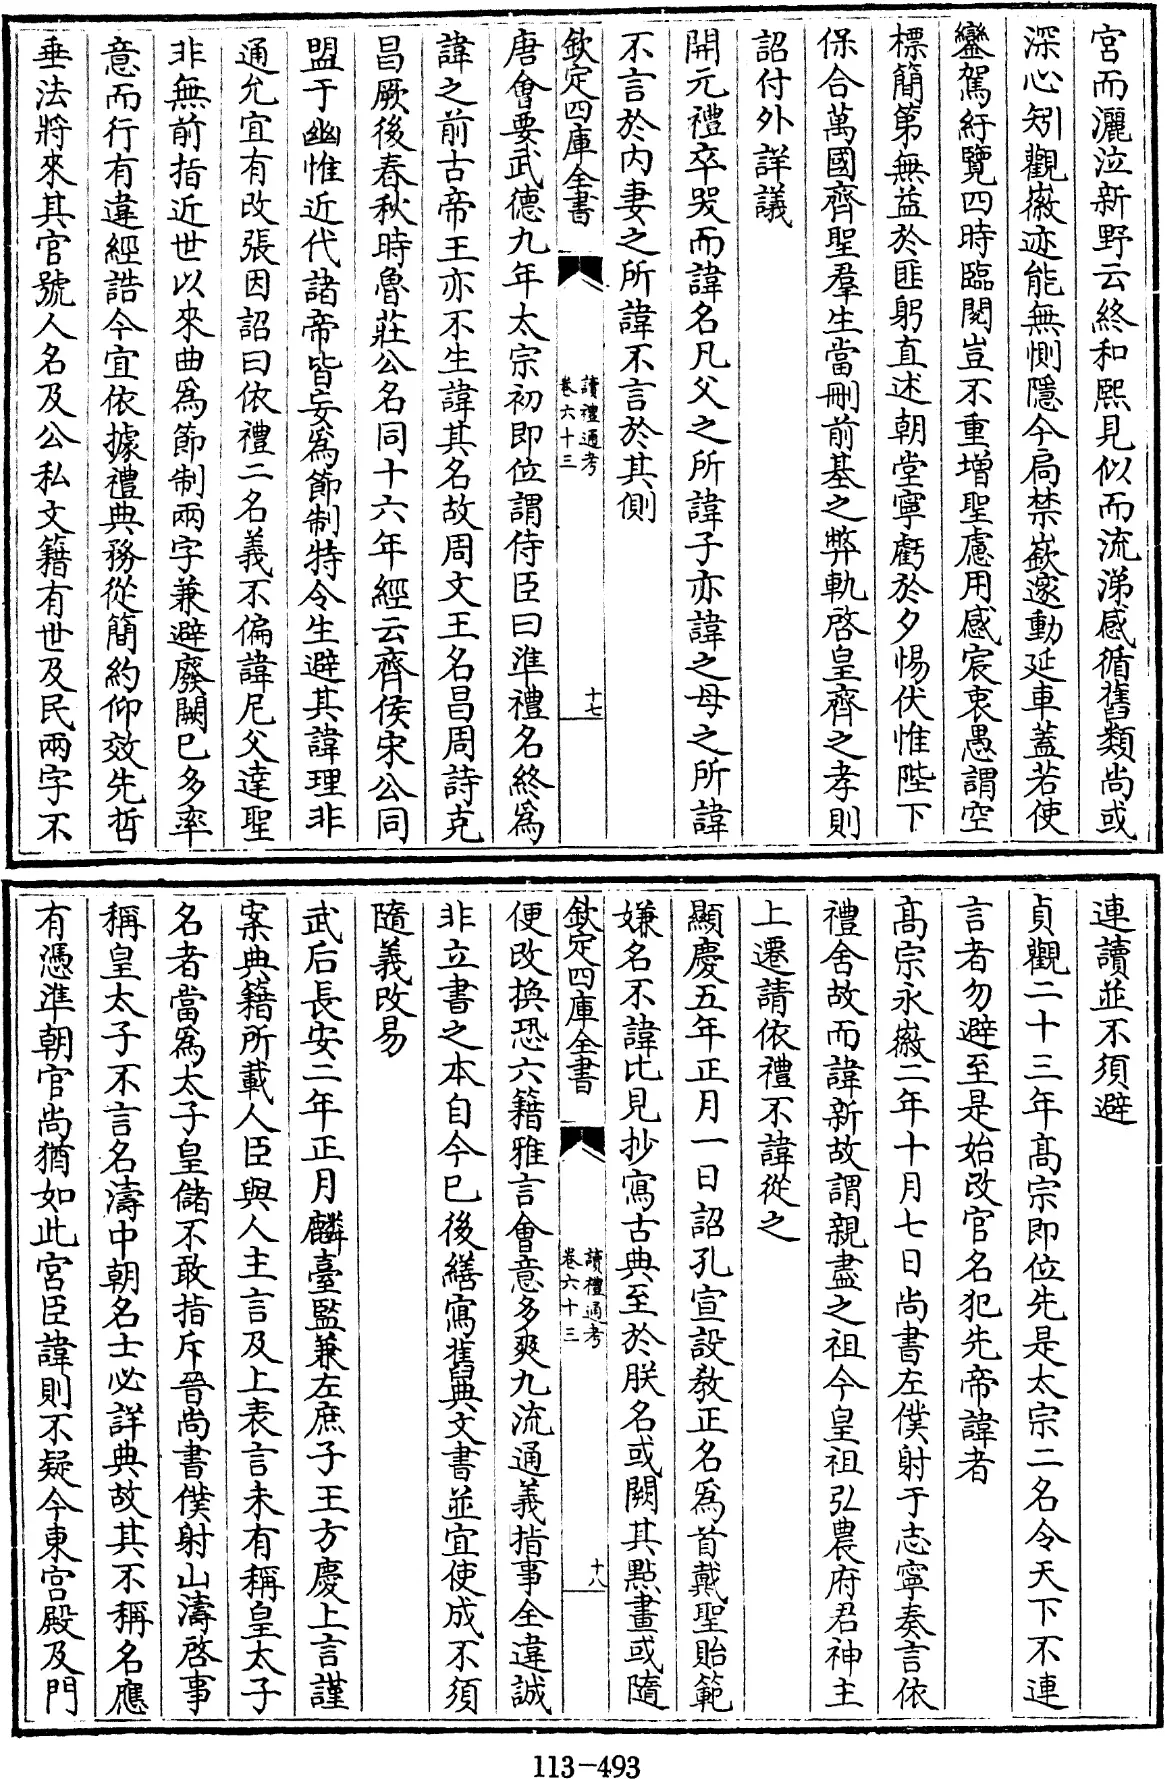 宮而灑泣新野云終和熙見似而流涕感循舊類尚或
深心矧觀徽迹能無惻隱今扃禁嶔邃動延車蓋若使
鑾駕紆覽四時臨閱豈不重增聖慮用感宸衷愚謂空
標簡第無益於匪躬直述朝堂寧虧於夕惕伏惟陛下
保合萬國齊聖羣生當刪前基之弊軌啓皇齊之孝則
詔付外詳議
開元禮卒哭而諱名凡父之所諱子亦諱之母之所諱
不言於內妻之所諱不言於其側
欽定四庫全書
讀禮通考
卷六十三
十七
唐會要武德九年太宗初即位謂侍臣曰準禮名終為
諱之前古帝王亦不生諱其名故周文王名昌周詩克
昌厥後春秋時魯莊公名同十六年經云齊侯宋公同
盟于幽惟近代諸帝皆妄為節制特令生避其諱理非
通允宜有改張因詔曰依禮二名義不偏諱尼父達聖
非無前指近世以來曲為節制兩字兼避廢闕已多率
意而行有違經誥今宜依據禮典務從簡約仰效先哲
垂法將來其官號人名及公私文籍有世及民兩字不
連讀並不須避
貞觀二十三年髙宗即位先是太宗二名令天下不連
言者勿避至是始改官名犯先帝諱者
髙宗永徽二年十月七日尚書左僕射于志寧奏言依
禮舍故而諱新故謂親盡之祖今皇祖弘農府君神主
上遷請依禮不諱從之
顯慶五年正月一日詔孔宣設敎正名為首戴聖貽範
嫌名不諱比見抄寫古典至於朕名或闕其點畫或隨
欽定四庫全書
讀禮通考
卷六十三
十八
便改換恐六籍雅言會意多爽九流通義指事全違誠
非立書之本自今已後繕寫舊典文書並宜使成不須
隨義改易
武后長安二年正月麟臺監兼左庶子王方慶上言謹
案典籍所載人臣與人主言及上表言未有稱皇太子
名者當為太子皇儲不敢指斥晉尚書僕射山濤啓事
稱皇太子不言名濤中朝名士必詳典故其不稱名應
有憑準朝官尚猶如此宮臣諱則不疑今東宫殿及門
113-493